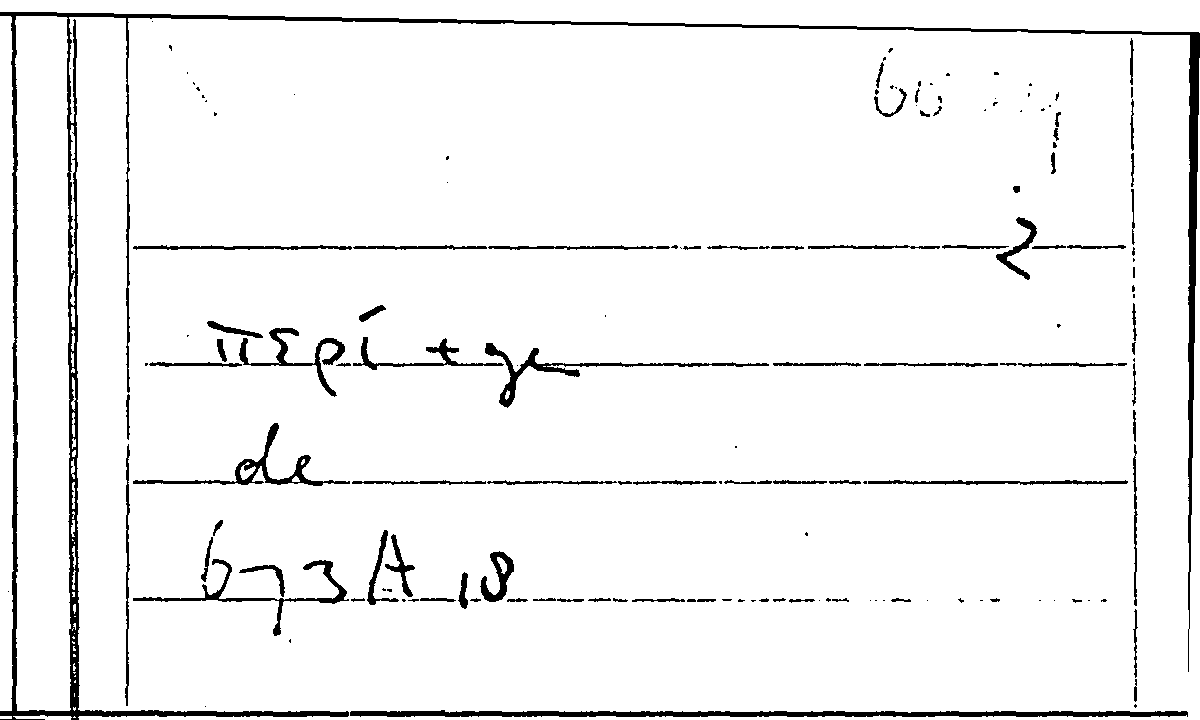 2
περί + gen
de
673 A 18